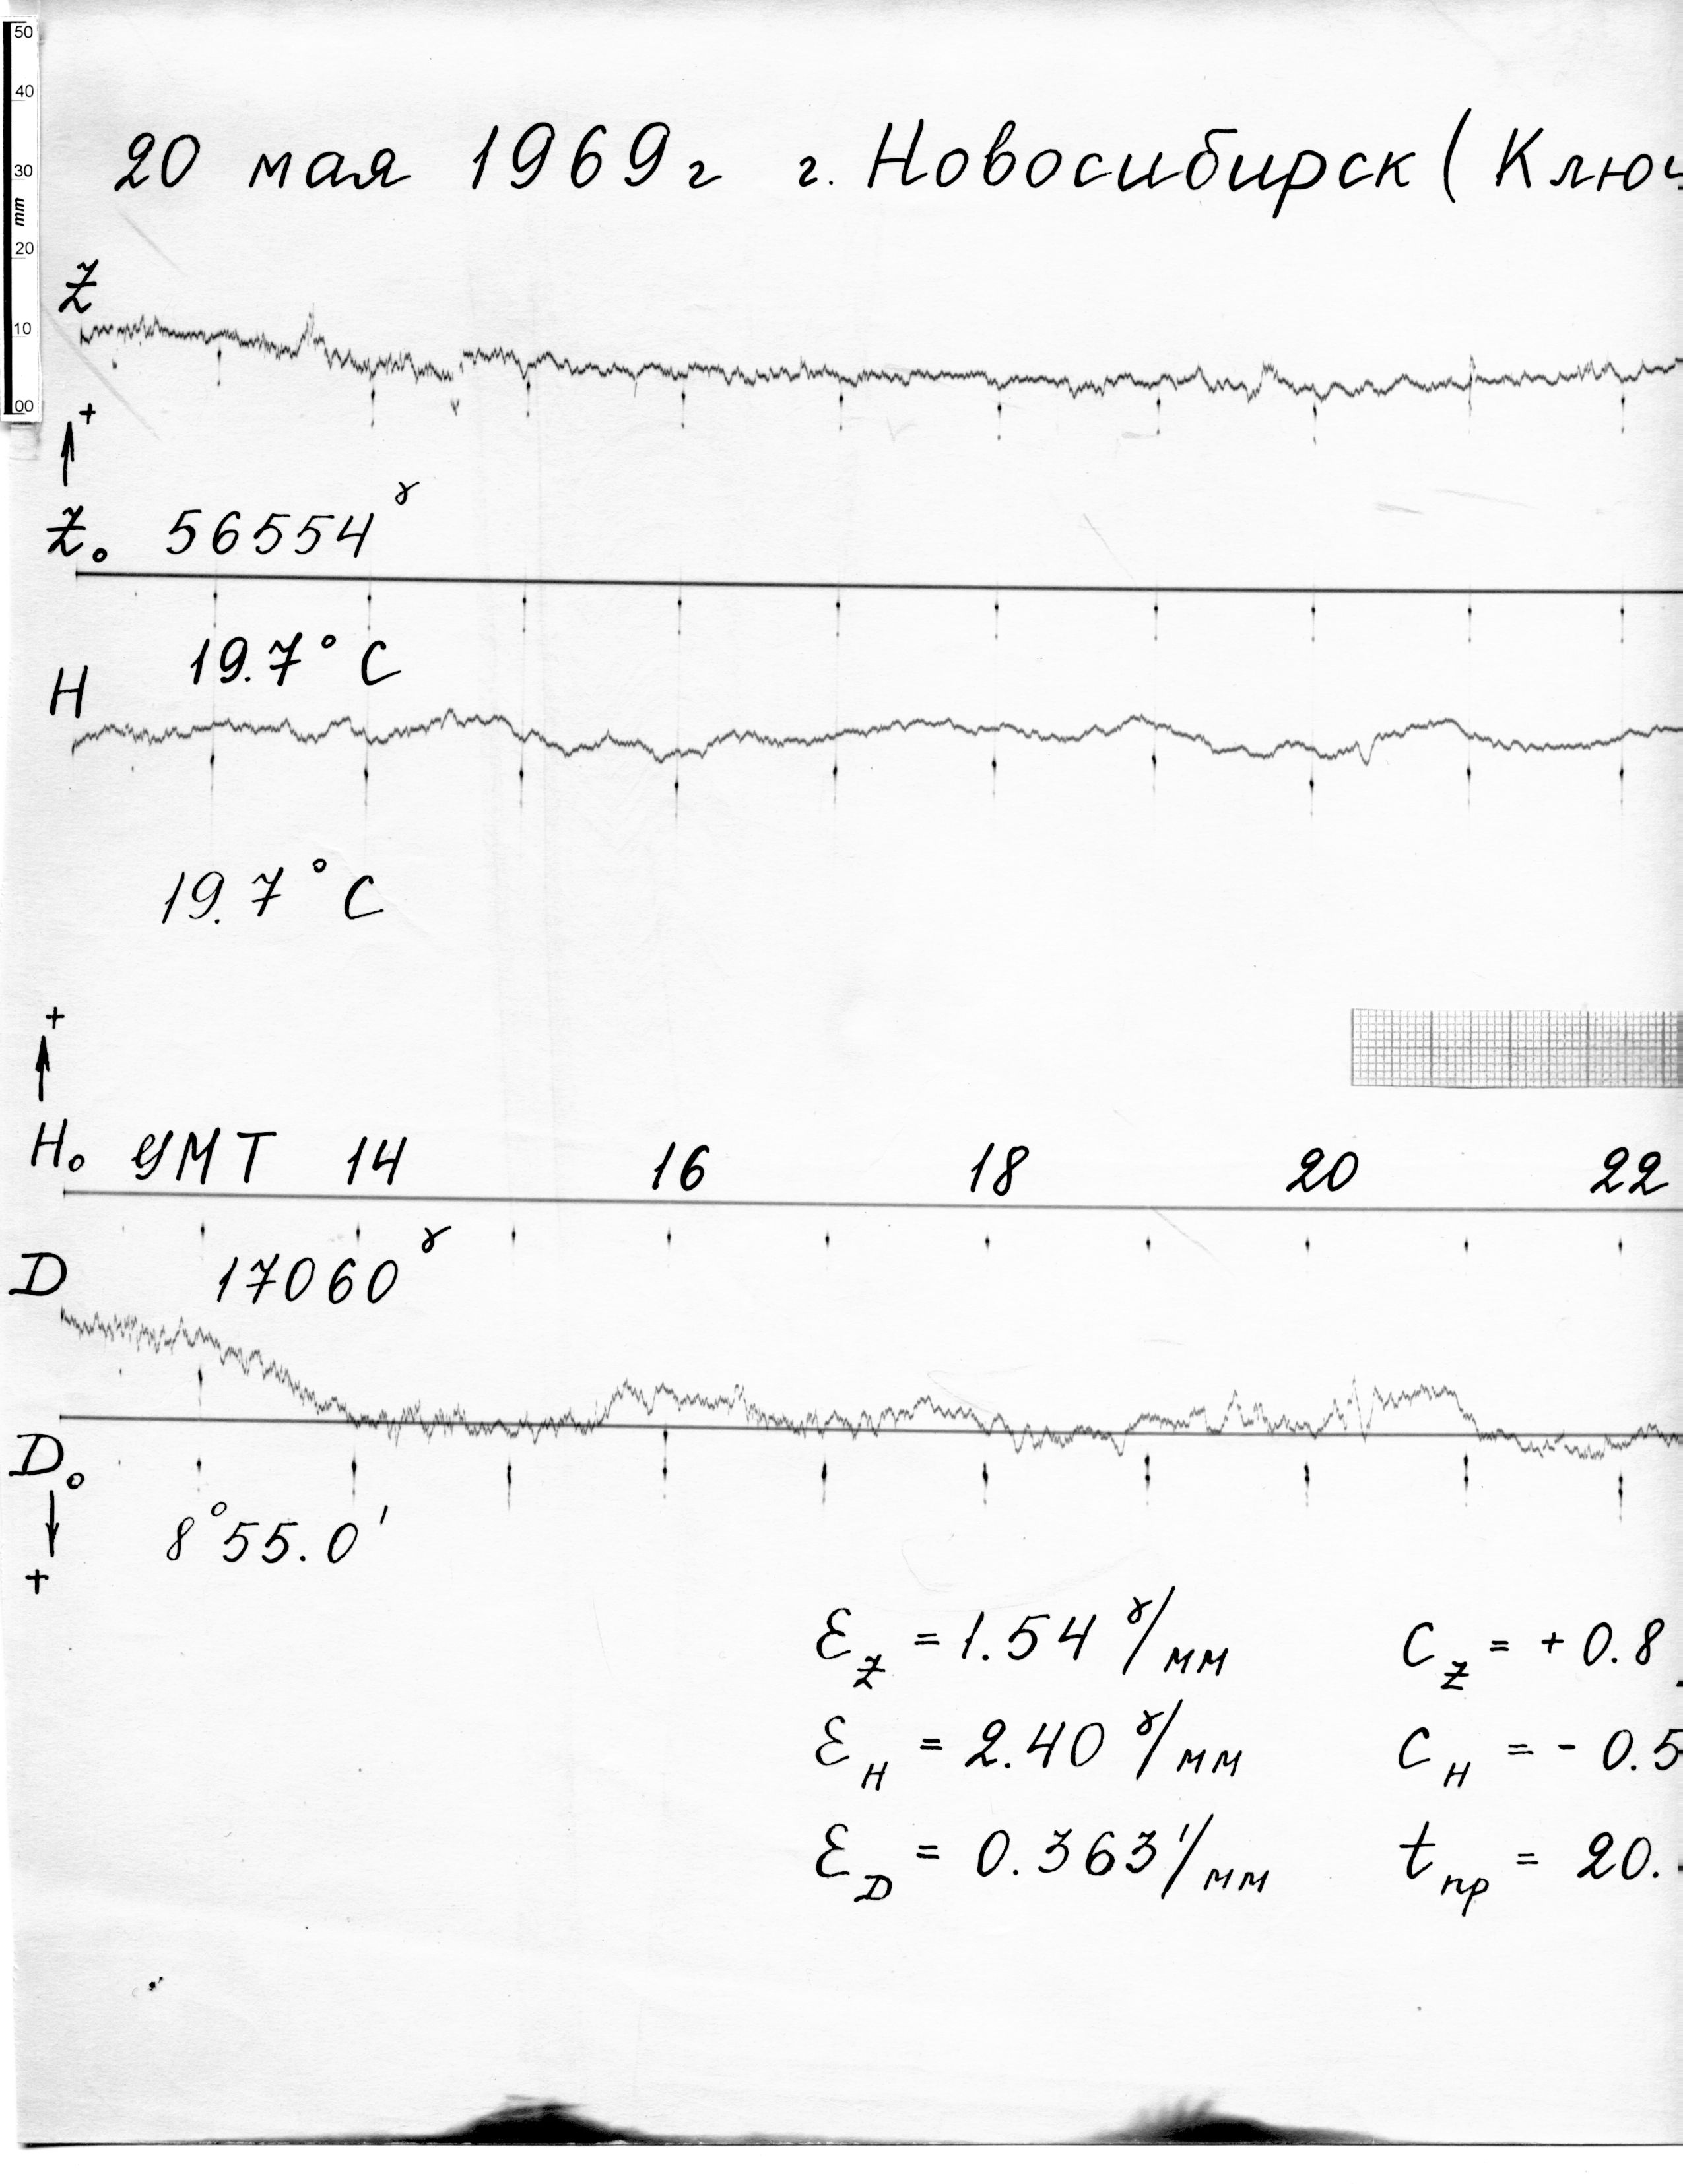 50
40
30
mm
20
10
00
20 мая 1969г г. Новосибирск (Ключ
Z
+
Z₀ 56554ᵞ
19.7° C
H
19.7° C
+
H₀ УМТ 14 16 18 20 22
D 17060ᵞ
D₀
8°55.0'
+
Ɛ_Z = 1.54 ᵞ/мм C_Z = + 0.8
Ɛ_H = 2.40 ᵞ/мм C_H = - 0.5
Ɛ_D = 0.363'/мм t_пр = 20.